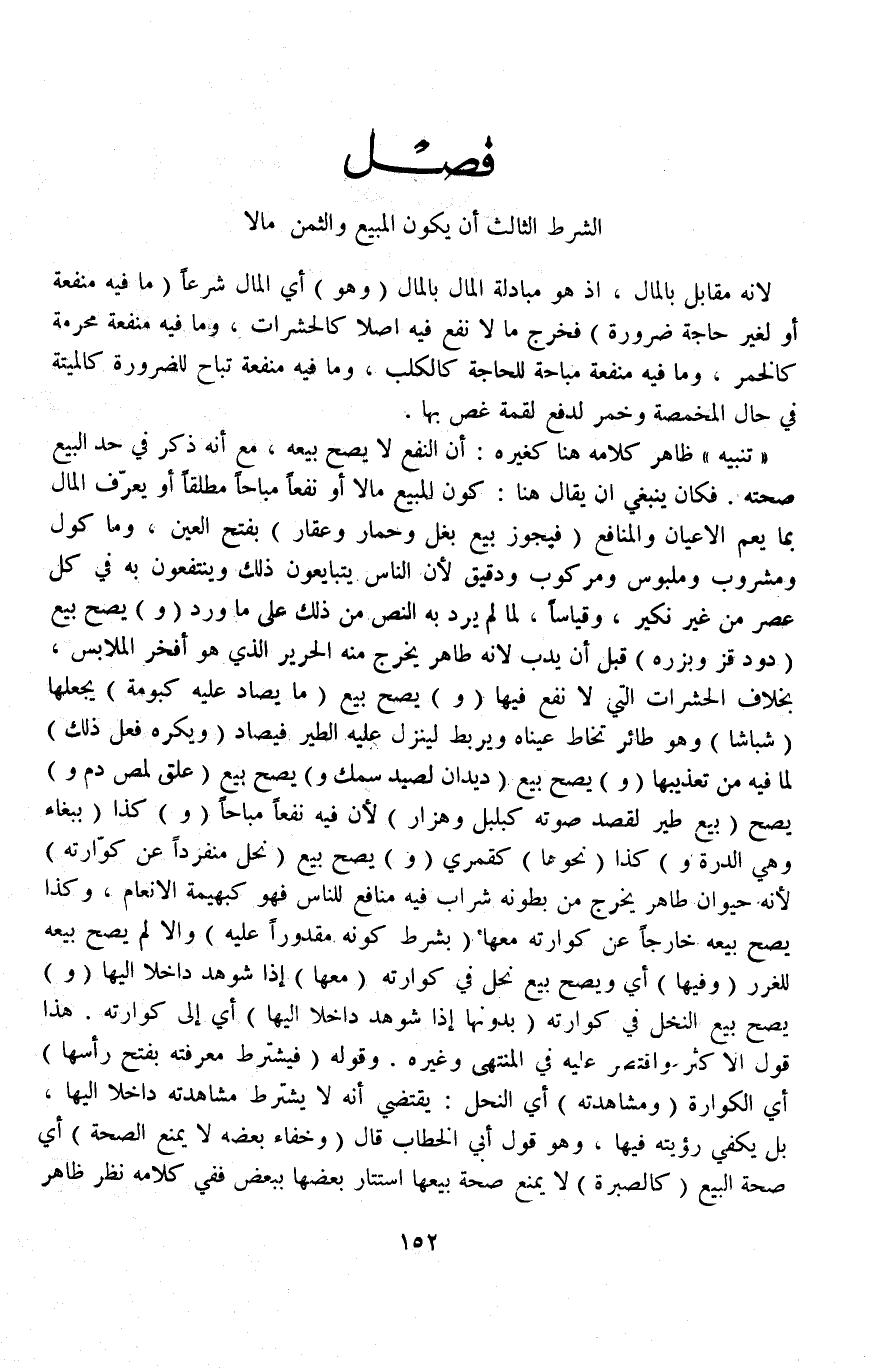 فصل
الشرط الثالث أن يكون المبيع والثمن مالا
لانه مقابل بالمال ، اذ هو مبادلة المال بالمال ( وهو ) أي المال شرعاً ( ما فيه منفعة
أو لغير حاجة ضرورة ) فخرج ما لا نفع فيه اصلا كالحشرات ، وما فيه منفعة محرمة
كالخمر ، وما فيه منفعة مباحة للحاجة كالكلب ، وما فيه منفعة تباح للضرورة كالميتة
في حال المخمصة وخمر لدفع لقمة غص بها .
« تنبيه » ظاهر كلامه هنا كغيره : أن النفع لا يصح بيعه ، مع أنه ذكر في حد البيع
صحته . فكان ينبغي ان يقال هنا : كون المبيع مالا أو نفعاً مباحاً مطلقاً أو يعرّف المال
بما يعم الاعيان والمنافع ( فيجوز بيع بغل وحمار وعقار ) بفتح العين ، وما كول
ومشروب وملبوس ومركوب ودقيق لأن الناس يتبايعون ذلك وينتفعون به في كل
عصر من غير نكير ، وقياساً ، لما لم يرد به النص من ذلك على ما ورد ( و ) يصح بيع
( دود قز وبزره ) قبل أن يدب لانه طاهر يخرج منه الحرير الذي هو أفخر الملابس ،
بخلاف الحشرات التي لا نفع فيها ( و ) يصح بيع ( ما يصاد عليه كبومة ) يجعلها
( شباشا ) وهو طائر تخاط عيناه ويربط لينزل عليه الطير فيصاد ( ويكره فعل ذلك )
لما فيه من تعذيبها ( و ) يصح بيع ( ديدان لصيد سمك و) يصح بيع ( علق لمص دم و )
يصح ( بيع طير لقصد صوته كبلبل وهزار ) لأن فيه نفعاً مباحاً ( و ) كذا ( ببغاء
وهي الدرة و ) كذا ( نحوها ) كقمري ( و ) يصح بيع ( نحل منفرداً عن كوّارته )
لأنه حيوان طاهر يخرج من بطونه شراب فيه منافع للناس فهو كبهيمة الانعام ، وكذا
يصح بيعه خارجاً عن كوارته معها ( بشرط كونه مقدوراً عليه ) والا لم يصح بيعه
للغرر ( وفيها ) أي ويصح بيع نحل في كوارته ( معها ) إذا شوهد داخلا اليها ( و )
يصح بيع النخل في كوارته ( بدونها إذا شوهد داخلا اليها ) أي إلى كوارته . هذا
قول الاكثر واقتصر عليه في المنتهى وغيره . وقوله ( فيشترط معرفته بفتح رأسها )
أي الكوارة ( ومشاهدته ) أي النحل : يقتضي أنه لا يشترط مشاهدته داخلا اليها ،
بل يكفي رؤيته فيها ، وهو قول أبي الخطاب قال ( وخفاء بعضه لا يمنع الصحة ) أي
صحة البيع ( كالصبرة ) لا يمنع صحة بيعها استتار بعضها ببعض ففي كلامه نظر ظاهر
١٥٢